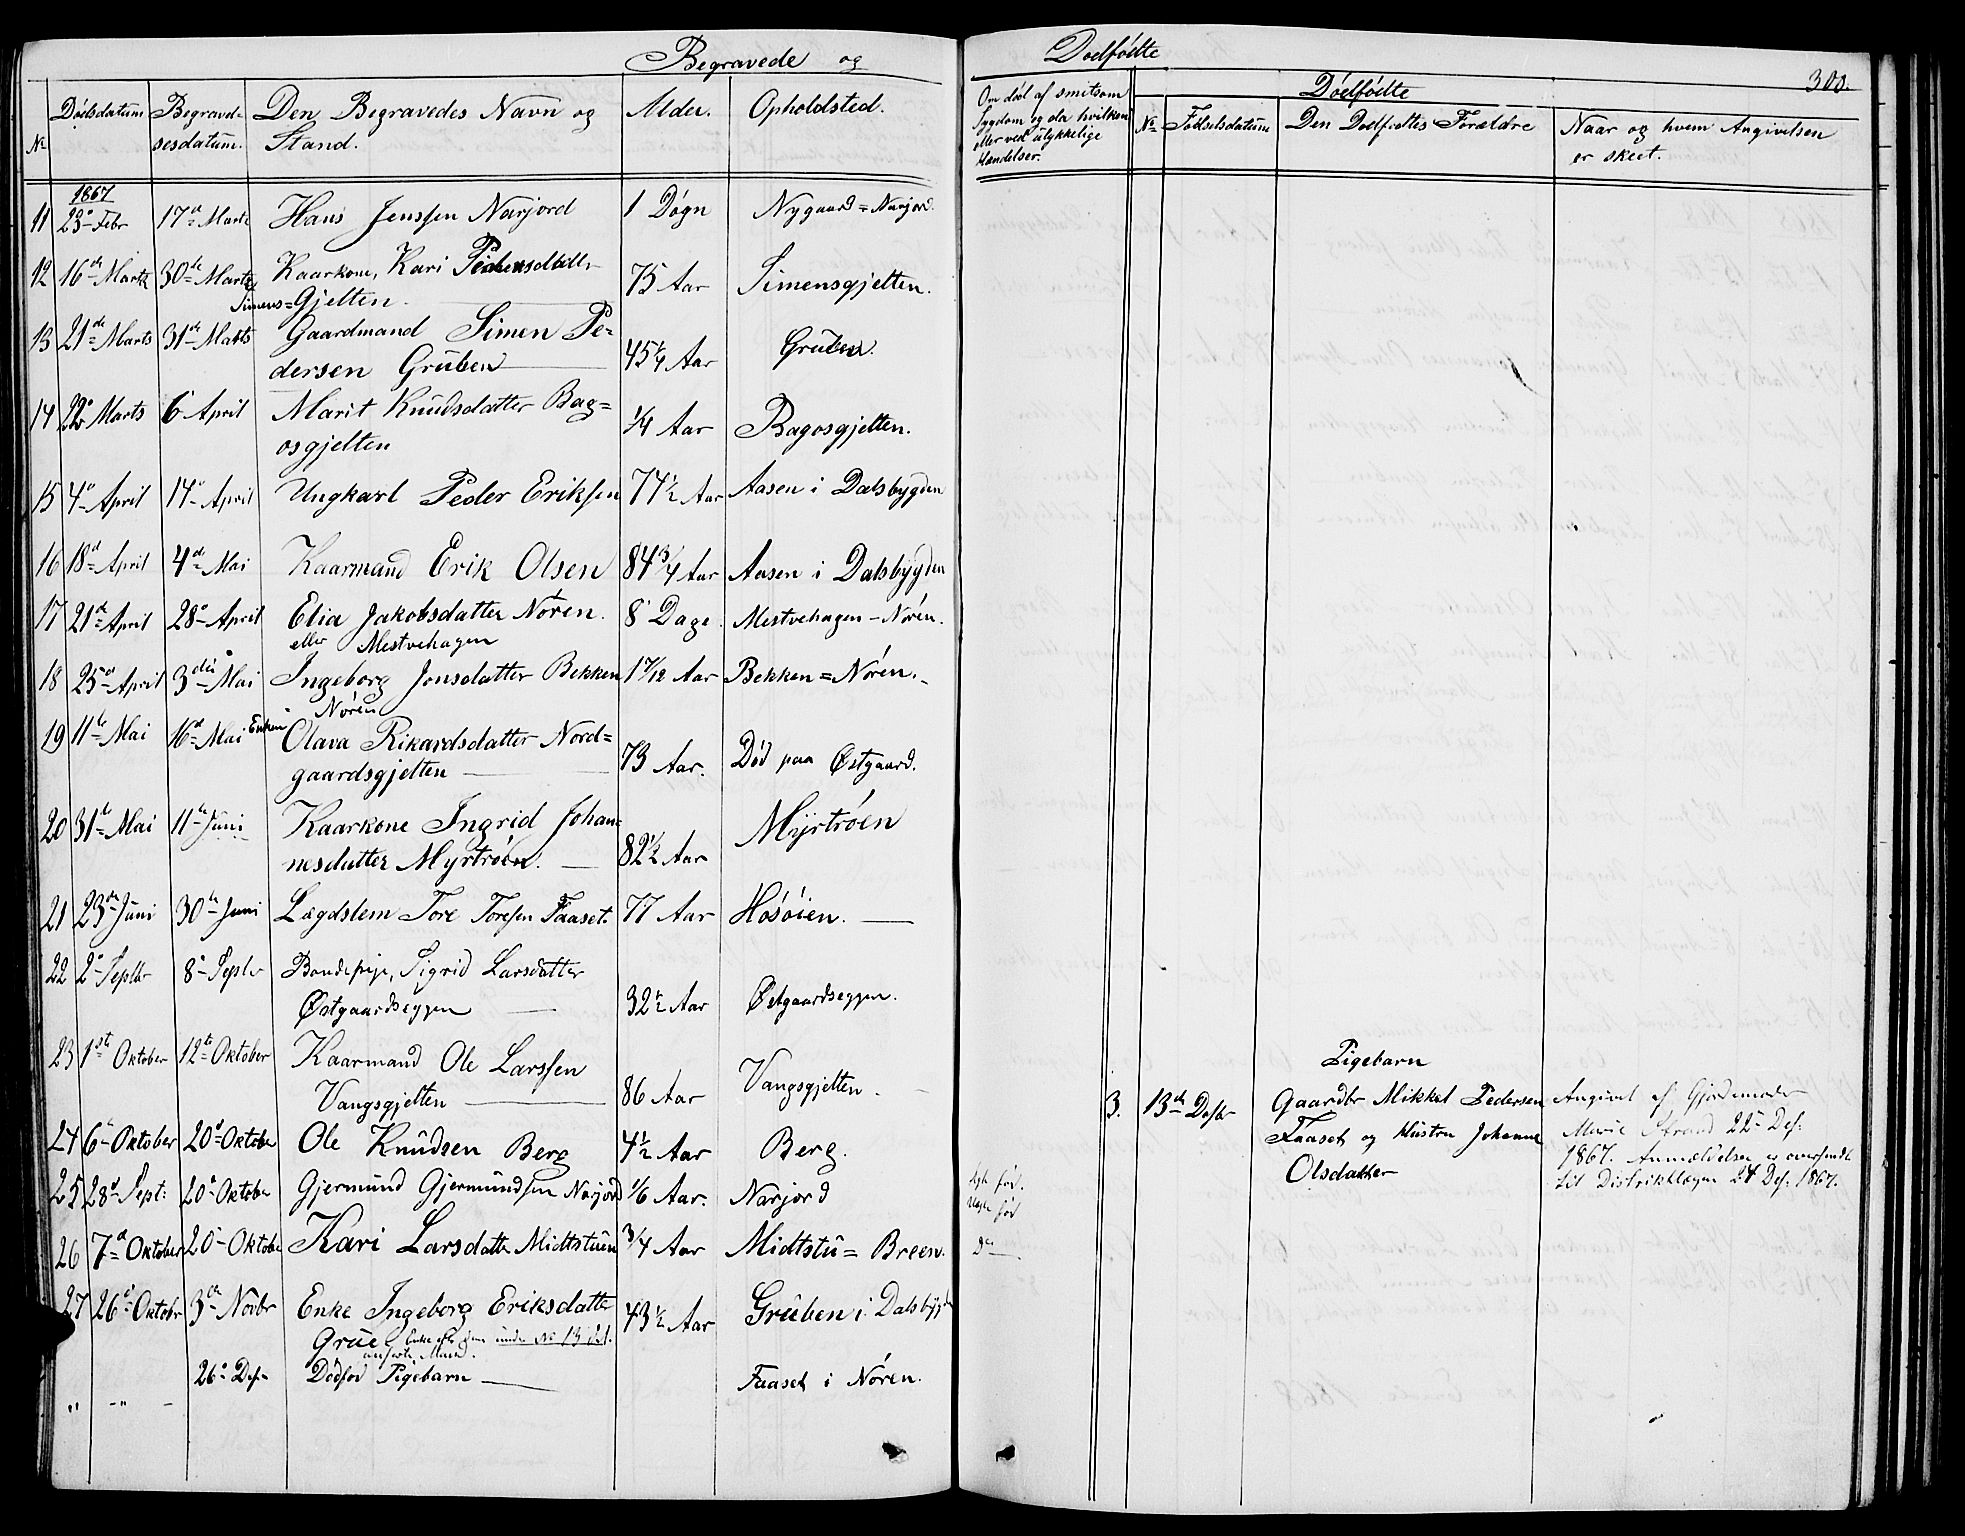 Begravede og
Dødsdatum Begravel- Den Begravedes Navn og Alder. Opholdsted.
№ sesdatum. Stand.
1867
11 23° Febr 17de Marts Hans Jenssen Narjord 1 Døgn Nygaard=Narjord.
12 16de Marts 30te Marts Kaarkone, Kari Pedersdatter 75 Aar Simensgjelten.
Simens=Gjelten.
13 21de Marts 31de Marts Gaardmand Simen Pe= 45¼ Aar Gruben.
dersen Gruben
14 22° Marts 6 April Marit Knudsdatter Bag= ¼ Aar Bagosgjelten.
osgjelten
15 4° April 14° April Ungkarl Peder Eriksen 77½ Aar Aasen i Dalsbygden
16 18d April 4de Mai Kaarmand Erik Olsen 84¾ Aar Aasen i Dalsbygden
17 21de April 28° April Elia Jakobsdatter Nøren. 8 Dage. Mestvehagen-Nøren.
eller Mestvehagen
18 25° April 3die Mai Ingeborg Jonsdatter Bekken 1 7/12 Aar Bekken=Nøren.
Nøren
19 11te Mai 16d Mai Enken Olava Rikardsdatter Nord= 73 Aar. Død paa Østgaard.
gaardsgjelten
20 31te Mai 11te Juni Kaarkone Ingrid Johan- 82½ Aar Myrtrøen
nesdatter Myrtrøen.
21 23de Juni 30te Juni Lægdslem Tore Toresen Faaset. 77 Aar Hosøien.
22 2° Septbr 8° Septbr Bondepige, Sigrid Larsdatter 32½ Aar Østgaardseggen.
Østgaardseggen
23 1ste Oktober 12te Oktober Kaarmand Ole Larssen 86 Aar Vangsgjelten.
Vangsgjelten
24 6° Oktober 20° Oktober Ole Knudsen Berg 4½ Aar Berg.
25 28° Sept: 20° Oktober Gjermund Gjermundsen Narjord 1/6 Aar. Narjord
26 7d Oktober 20° Oktober Kari Larsdatter Midtstuen ¾ Aar Midtstu=Breen.
27 26° Oktobr 3de Novbr Enke Ingeborg Eriksdatter 43½ Aar Gruben i Dalsbygden
Grue Enke efter den under № 13 det.
anførte Mand.
" -"- 26° Des. Dødfød Pigebarn Faaset i Nøren.
Dødfødte
300.
Om død af smitsom
Sygdom og da hvilken
eller ved ulykkelige
Hændelser.
Dødfødte
№ Fødselsdatum Den Dødfødtes Forældre Naar og hvem Angivelsen
er skeet.
Pigebarn
3. 13de Desbr Gaardbr Mikkel Pedersen
Faaset og Hustru Johanne
Olsdatter
Angivet af Gjordemoder
Marie Strand 22° Des:
1867. Anmeldelsen er oversendt
til Distriktlægen 24 Des: 1867.
do